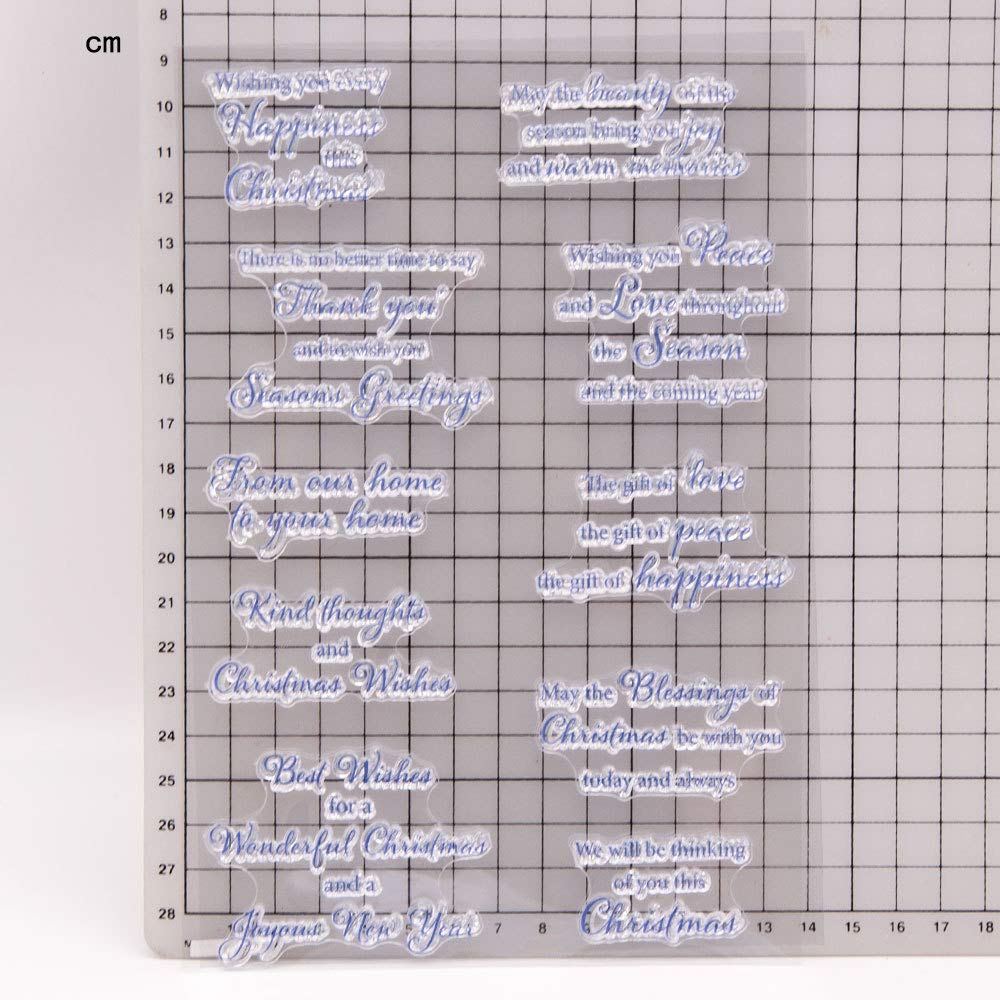 cm
8
9
10
11
12
13
14
15
16
17
18
19
20
21
22
23
24
25
26
27
28
Wishing you every
Happiness
this
Christmas
There is no better time to say
Thank you
and to wish you
Seasons Greetings
From our home
to your home
Kind thoughts
and
Christmas Wishes
Best Wishes
for a
Wonderful Christmas
and a
Joyous New Year
May the beauty of the
season bring you joy
and warm memories
Wishing you Peace
and Love throughout
the Season
and the coming year
The gift of love
the gift of peace
the gift of happiness
May the Blessings of
Christmas be with you
today and always
We will be thinking
of you this
Christmas
7 8 12 13 14 15 16 17 18